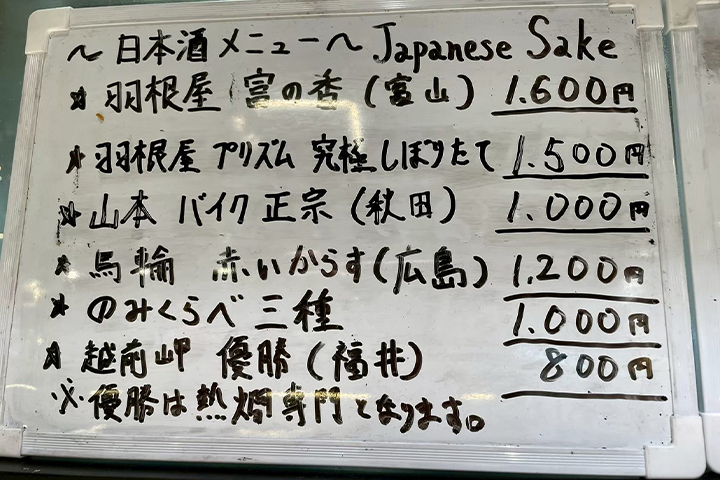 ～日本酒メニュー～ Japanese Sake
★ 羽根屋 富の香 (富山) 1.600円
★ 羽根屋 プリズム 究極しぼりたて 1.500円
★ 山本 バイク正宗 (秋田) 1.000円
★ 馬輪 赤いからす (広島) 1,200円
★ のみくらべ 三種 1.000円
★ 越前岬 優勝 (福井) 800円
※ 優勝は熱燗専門となります。